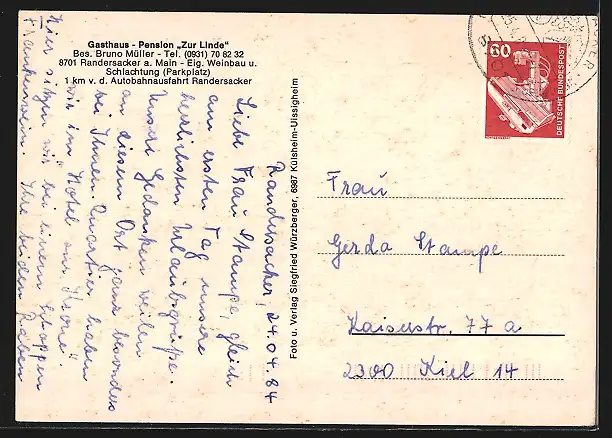 Gasthaus - Pension „Zur Linde"
Bes. Bruno Müller - Tel. (0931) 70 82 32
8701 Randersacker a. Main - Eig. Weinbau u.
Schlachtung (Parkplatz)
1 km v. d. Autobahnausfahrt Randersacker
Randersacker, 24.04.84
Liebe Frau Stampe, gleich
am ersten Tag unsere
herzlichsten Urlaubsgrüße.
Unsere Gedanken weilen
an diesem Ort ganz besonders
bei Ihnen. Quartier haben
wir im Hotel zur Krone.
Hier sitzen wir bei einem Schoppen
Frankenwein. Ihre beiden
Foto u. Verlag Siegfried Würzberger, 6987 Külsheim-Uissigheim
60
DEUTSCHE BUNDESPOST
Frau
Gerda Stampe
Kaiserstr. 77 a
2300 Kiel 14